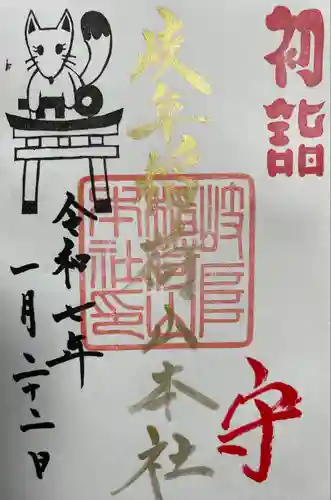 初詣
守
岐阜稲荷山本社
岐阜
稲荷山
本社印
令和七年
一月二十二日